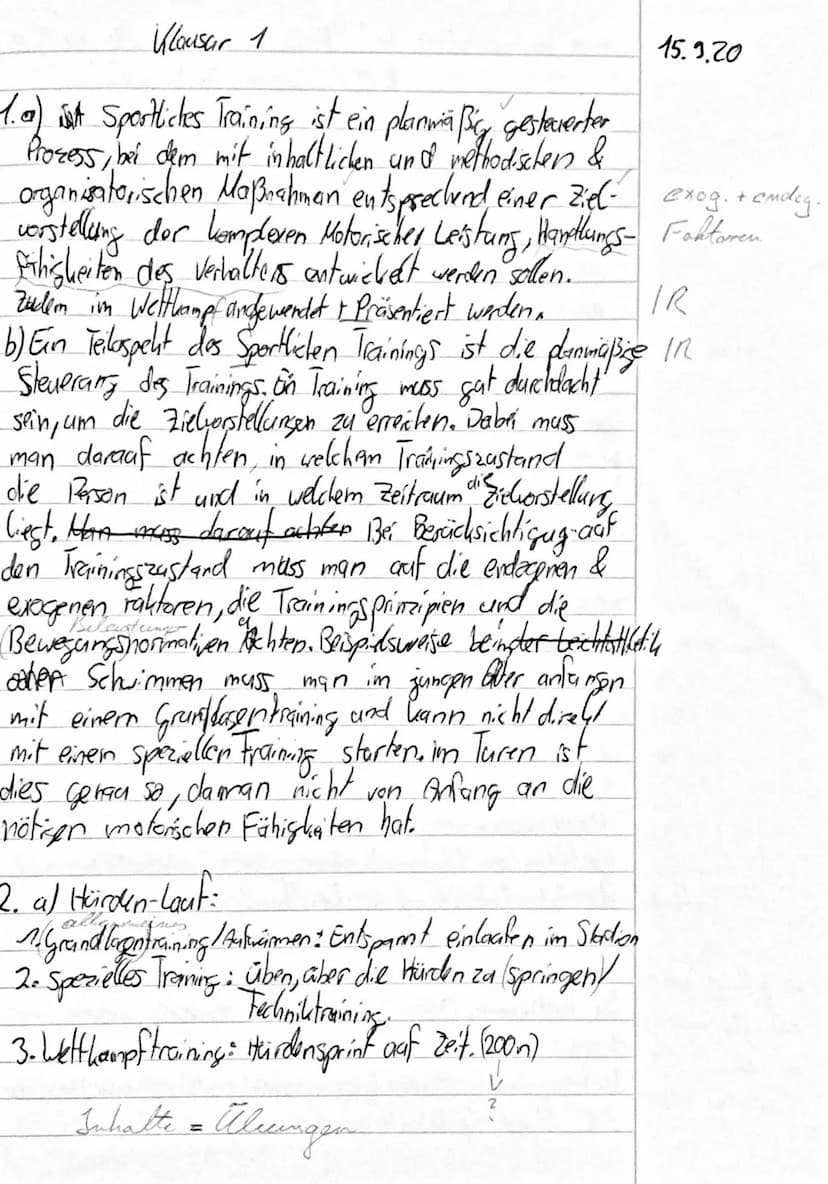 Klausur 1
15.9.20
1. a) Sportliches Training ist ein planmäßig gesteuerter
Prozess, bei dem mit inhaltlichen und methodischen &
organisatorischen Maßnahman entsprechend einer Ziel-
vorstellung der komplexen Motorischer Leistung, Handlungs-
exog. + endog.
Faktoren
fähigkeiten des Verhaltens entwickelt werden sollen.
Zudem im Wettkampf angewendet + Präsentiert werden.
IR
b) Ein Teilaspekt des Sportlichen Trainings ist die planmäßige
IR
Steuerung des Trainings. Ein Training muss gut durchdacht
sein, um die Zielvorstellungen zu erreichen. Dabei muss
man darauf achten, in welchem Trainingszustand
die Person ist und in welchem Zeitraum die Zielvorstellung
liegt. Man muss darauf achten Bei Berücksichtigug auf
den Trainingszustand muss man auf die endogenen &
exogenen Faktoren, die Trainingsprinzipien und die
Belastungs
Bewegungsnormativen achten. Beispielsweise bein der Leichtathletik
oder Schwimmen muss man im jungen Alter anfangen
mit einem Grundlagentraining und kann nicht direkt
mit einem speziellen Training starten. im Turen ist
dies genau so, da man nicht von Anfang an die
nötigen motorischen Fähigkeiten hat.
2. a) Hürden-Lauf:
allgemeines
1. Grundlagentraining/Aufwärmen: Entspannt einlaufen im Stadion
2. Spezielles Training: Üben, über die Hürden zu (springen)/
Techniktraining.
3. Wettkampftraining: Hürdensprint auf Zeit. (200m)
?
Inhalte = Übungen